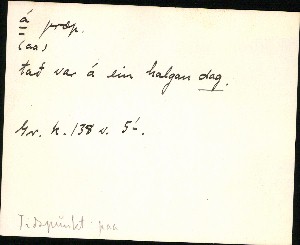 á præp.
(aa)
tað var á ein halgan dag.
Gr. K. 138 v. 5-.
Tidspunkt paa